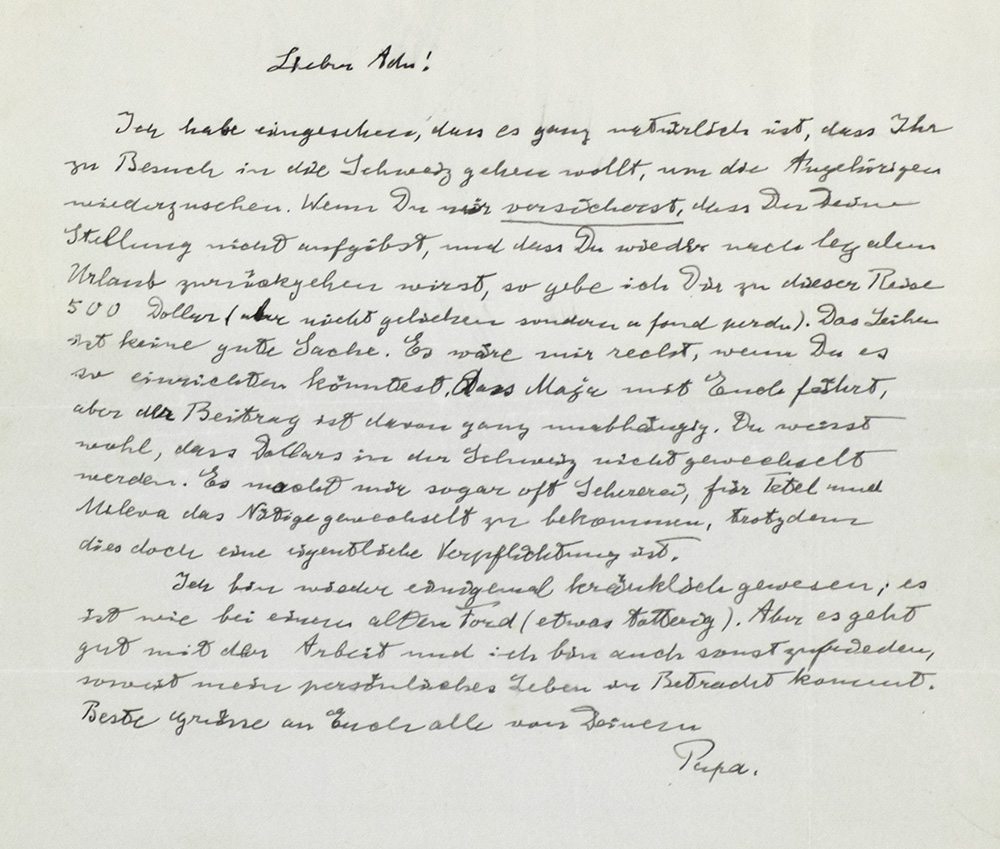 Lieber Adn!
Ich habe eingesehen, dass es ganz natürlich ist, dass Ihr
zu Besuch in die Schweiz gehen wollt, um die Angehörigen
wiederzusehen. Wenn Du mir versicherst, dass Du Deine
Stellung nicht aufgibst, und dass Du wieder nach legalem
Urlaub zurückgehen wirst, so gebe ich Dir zu dieser Reise
500 Dollar (aber nicht geliehen sondern a fond perdu). Das Leihen
ist keine gute Sache. Es wäre mir recht, wenn Du es
so einrichten könntest, dass Maja mit Euch fährt,
aber der Beitrag ist davon ganz unabhängig. Du weisst
wohl, dass Dollars in der Schweiz nicht gewechselt
werden. Es macht mir sogar oft Schererei, für Tetel und
Mileva das Nötige gewechselt zu bekommen, trotzdem
dies doch eine eigentliche Verpflichtung ist.
Ich bin wieder einigemal kränklich gewesen; es
ist wie bei einem alten Ford (etwas totterig). Aber es geht
gut mit der Arbeit und ich bin auch sonst zufrieden,
soweit mein persönliches Leben in Betracht kommt.
Beste Grüsse an Euch alle von Deinem
Papa.